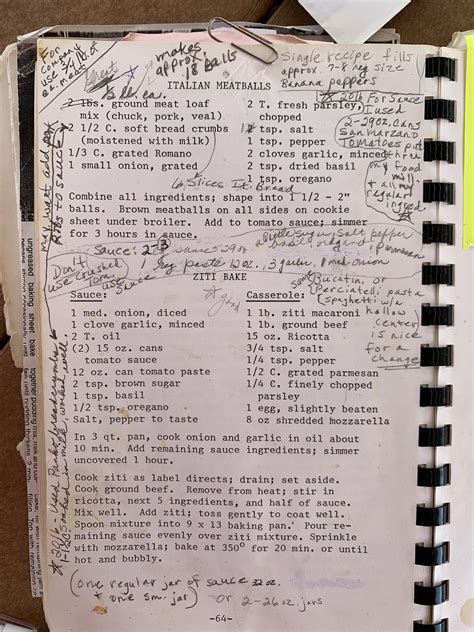 For
company
use
makes
approx.
18 balls
Single recipe fills
approx. 7-8 reg size
Banana peppers
Great
ITALIAN MEATBALLS
2 lbs. ground meat loaf
mix (chuck, pork, veal)
2 1/2 C. soft bread crumbs
(moistened with milk)
1/3 C. grated Romano
1 small onion, grated
2 T. fresh parsley,
chopped
tsp. salt
1 tsp. pepper
2 cloves garlic, minced
2 tsp. dried basil
1 tsp. oregano
2016 For Sauce
I used
2-29oz. Cans
San Marzano
Tomatoes put
thru
my food
mill
+ all my
regular
6 Slices It. Bread
Combine all ingredients; shape into 1 1/2 - 2"
balls. Brown meatballs on all sides on cookie
sheet under broiler. Add to tomato sauce; simmer
for 3 hours in sauce.
may want add pork
Ribs to sauce
a little sugar, salt, pepper
basil, oregano, parmesan
Sauce: 2-3 sauce 29oz
paste 12 oz., 3 garlic, 1 med onion
Don't
use crushed
Tom.
Sauce
ZITI BAKE
good
Bucatini, or
Perciatelli pasta
(spaghetti w/a
hollow
center)
is nice
for a
change
Sauce:
1 med. onion, diced
1 clove garlic, minced
2 T. oil
(2) 15 oz. cans
tomato sauce
12 oz. can tomato paste
2 tsp. brown sugar
1 tsp. basil
1/2 tsp. oregano
Salt, pepper to taste
Casserole:
1 lb. ziti macaroni
1 lb. ground beef
15 oz. Ricotta
3/4 tsp. salt
1/4 tsp. pepper
1/2 C. grated parmesan
1/4 C. finely chopped
parsley
1 egg, slightly beaten
8 oz shredded mozzarella
In 3 qt. pan, cook onion and garlic in oil about
10 min. Add remaining sauce ingredients; simmer
uncovered 1 hour.
Cook ziti as label directs; drain; set aside.
Cook ground beef. Remove from heat; stir in
ricotta, next 5 ingredients, and half of sauce.
Mix well. Add ziti; toss gently to coat well.
Spoon mixture into 9 x 13 baking pan. Pour re-
maining sauce evenly over ziti mixture. Sprinkle
with mozzarella; bake at 350° for 20 min. or until
hot and bubbly.
2016 - Used Panko breadcrumbs
soaked in milk, worked well.
(One regular jar of sauce 32 oz.
+ one sm. jar) or 2-26 oz. jars
-64-